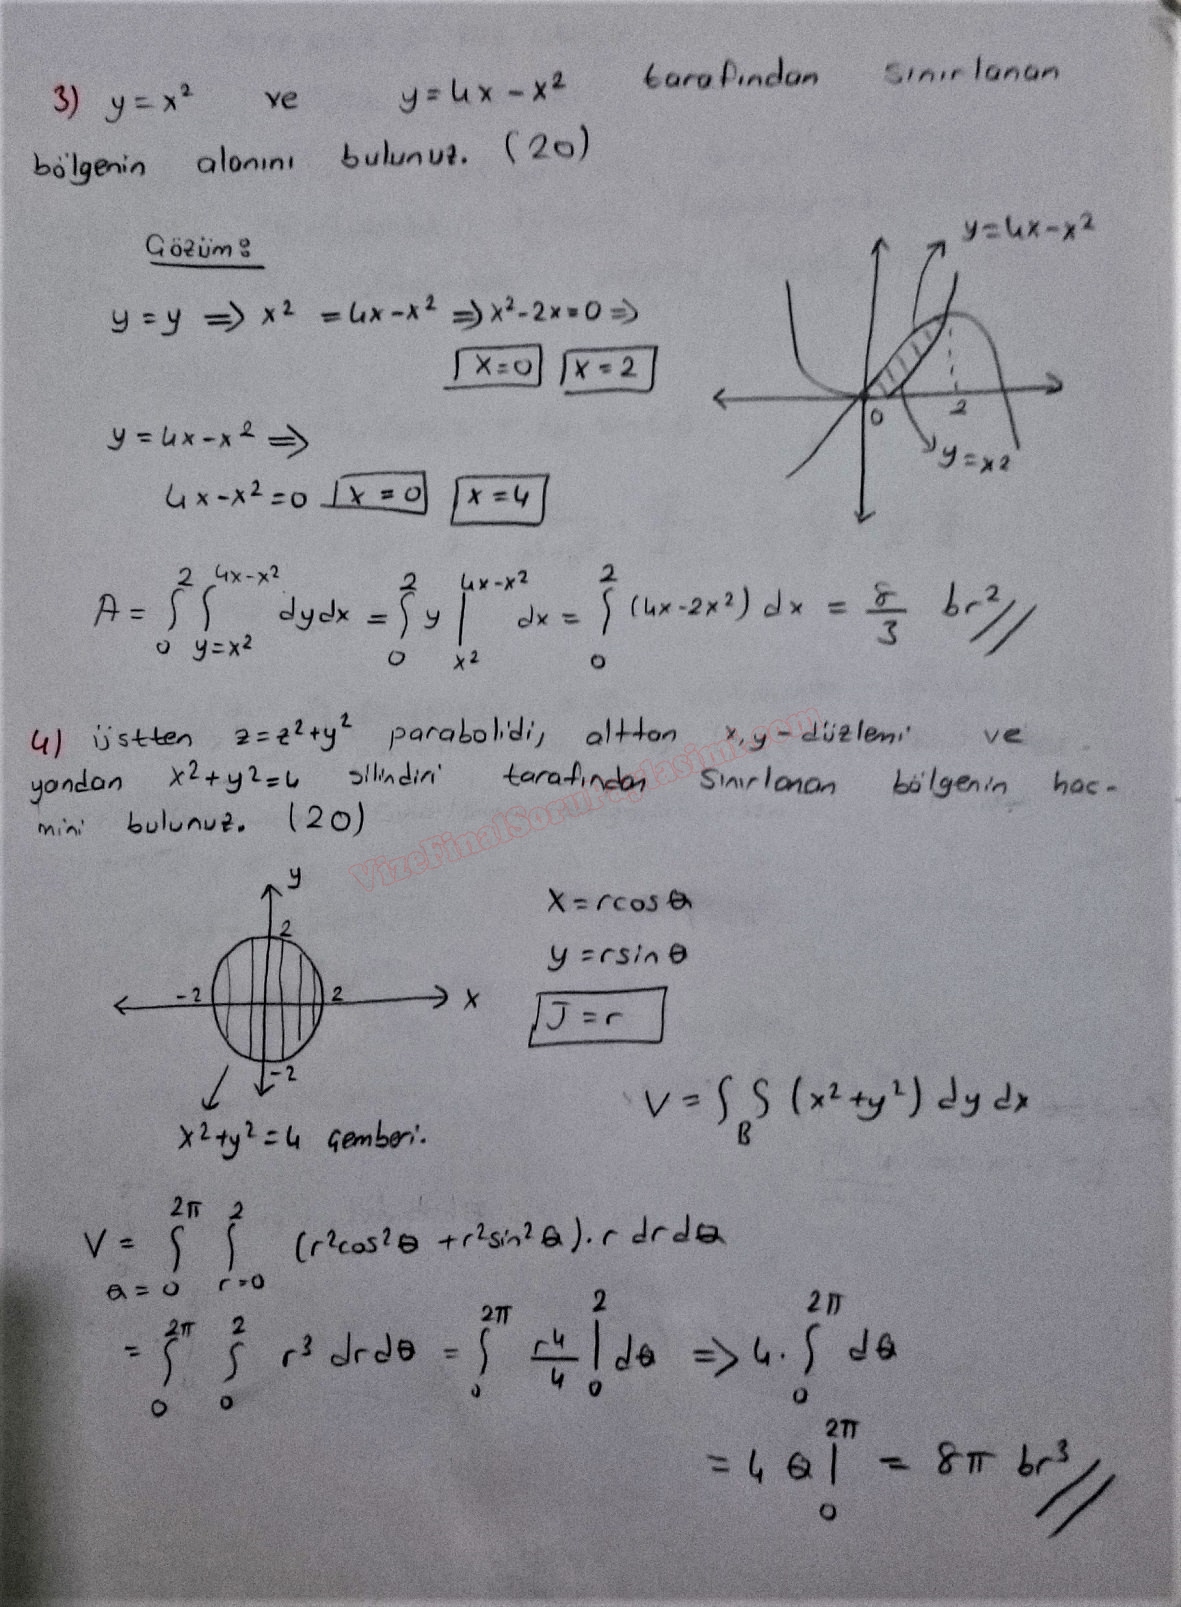 3) y = x² ve y = 4x - x² tarafından sınırlanan
bölgenin alanını bulunuz. (20)
Çözüm:
y = y ⇒ x² = 4x - x² ⇒ x² - 2x = 0 ⇒
x = 0 x = 2
y = 4x - x² ⇒
4x - x² = 0 x = 0 x = 4
y = 4x - x²
0 2
y = x²
A = ∫₀² ∫_{y=x²}^{4x-x²} dydx = ∫₀² y |_{x²}^{4x-x²} dx = ∫₀² (4x-2x²) dx = 8/3 br²//
4) üstten z = z² + y² parabolidi, alttan x,y-düzlemi ve
yandan x² + y² = 4 silindiri tarafından sınırlanan bölgenin hac-
mini bulunuz. (20)
VizeFinalSoruKaplasimi.com
y
2
-2 2 x
-2
x² + y² = 4 çemberi.
x = rcosθ
y = rsinθ
J = r
V = ∫∫_B (x² + y²) dy dx
V = ∫_{θ=0}^{2π} ∫_{r=0}^{2} (r²cos²θ + r²sin²θ).r drdθ
= ∫₀^{2π} ∫₀² r³ drdθ = ∫₀^{2π} r⁴/4 |₀² dθ ⇒ 4. ∫₀^{2π} dθ
= 4 θ |₀^{2π} = 8π br³//